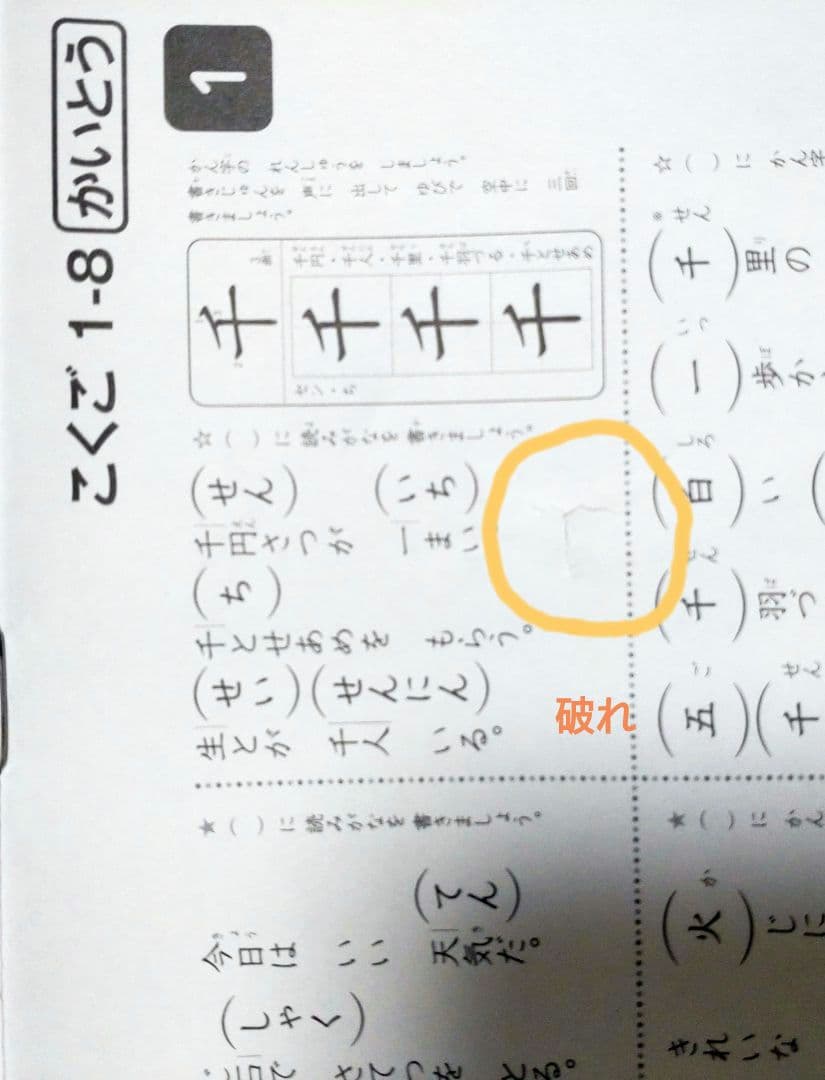 こくご 1-8 かいとう
1
かん字の れんしゅうを しましょう。
書きじゅんを 声に 出して ゆびで 空中に 三回
書きましょう。
千 3画
千円・千人・千里・千羽づる・千とせあめ
千 千 千
セン・ち
☆（ ）に 読みがなを 書きましょう。
（せん） （いち）
千円さつが 一まい
（ち）
千とせあめを もらう。
（せい）（せんにん）
生とが 千人 いる。
★（ ）に 読みがなを 書きましょう。
（てん）
今日は いい 天気だ。
（しゃく）
さてつを とる。
☆（ ）に かん字
※せん
（千）里の
いっ
（一）歩か
しろ
（白）い
せん
（千）羽づ
ご せん
（五）（千）
★（ ）に かん
か
（火）じに
きれいな
破れ